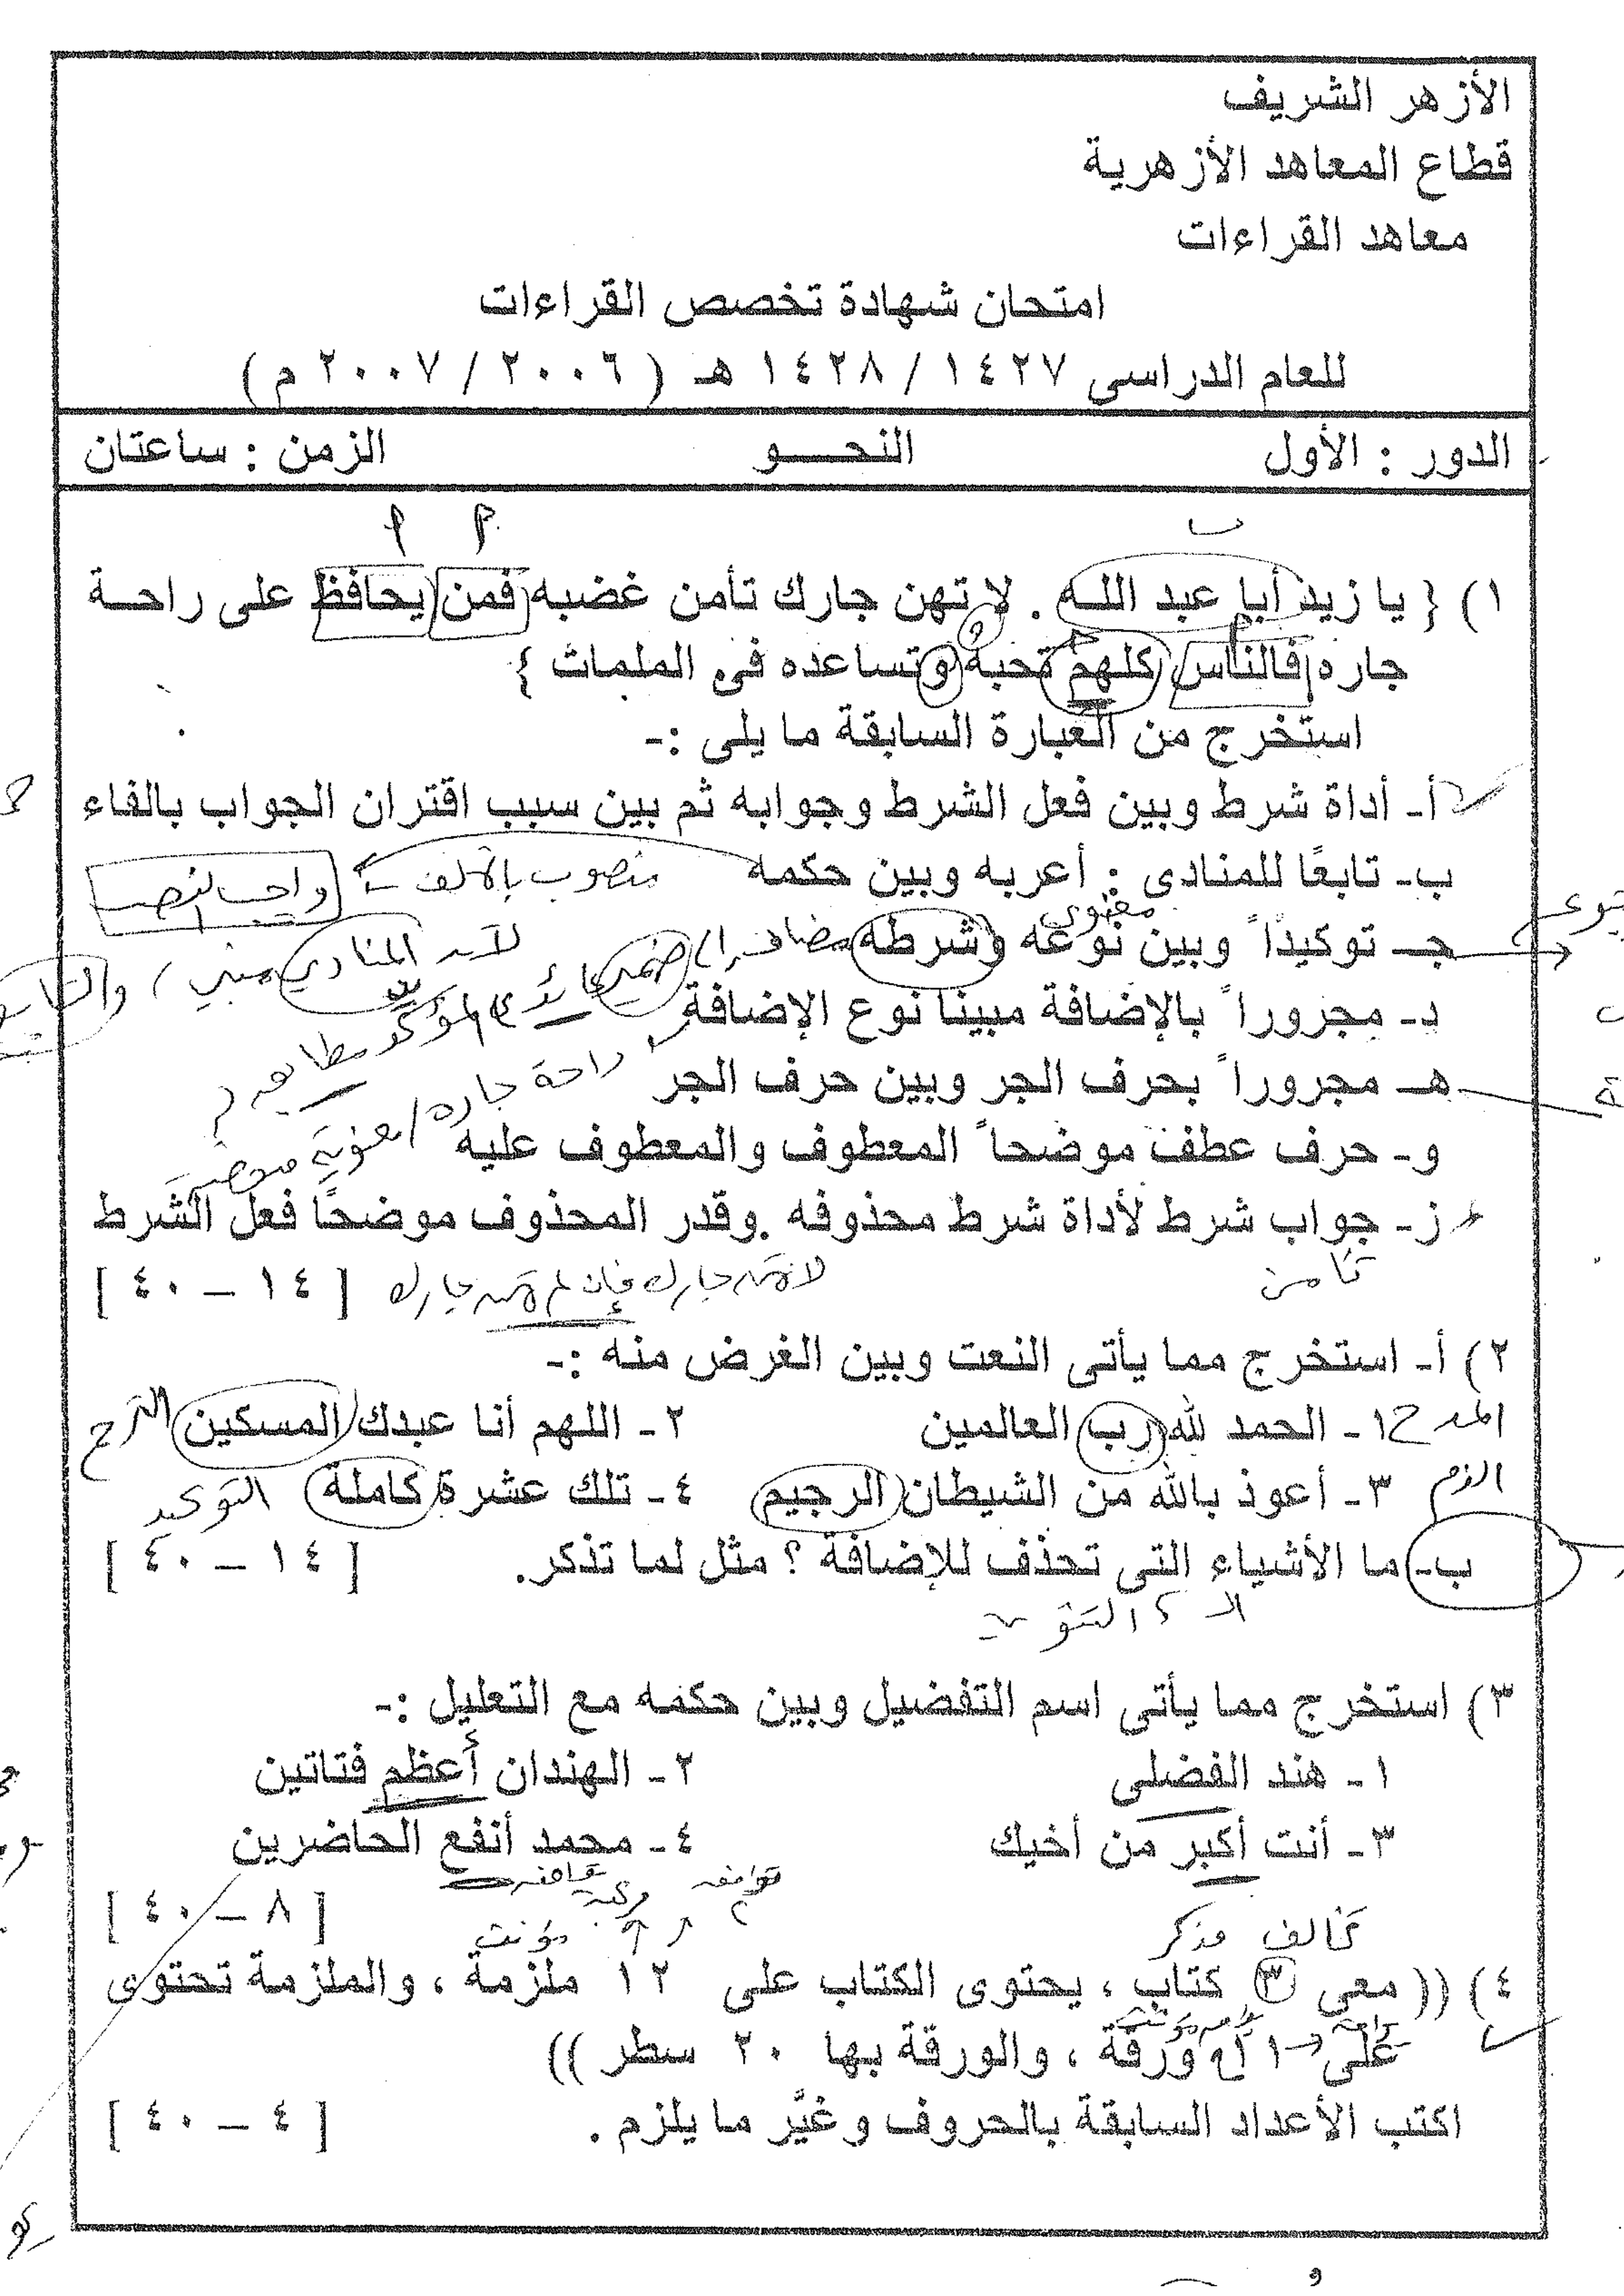 الأزهر الشريف
قطاع المعاهد الأزهرية
معاهد القراءات
امتحان شهادة تخصص القراءات
للعام الدراسى ١٤٢٧ / ١٤٢٨ هـ ( ٢٠٠٦ / ٢٠٠٧ م )
الدور : الأول النحــــو الزمن : ساعتان
١) { يا زيد أبا عبد الله . لا تهن جارك تأمن غضبه فمن يحافظ على راحة
جاره فالناس كلهم تحبه وتساعده فى الملمات }
استخرج من العبارة السابقة ما يلى :-
أ- أداة شرط وبين فعل الشرط وجوابه ثم بين سبب اقتران الجواب بالفاء
ب- تابعًا للمنادى : أعربه وبين حكمه منصوب بالألف واجب النصب
معنوي
جـ- توكيداً وبين نوعه وشرطه مضاف إلى ضمير لأن المنادي مبني
د- مجروراً بالإضافة مبيناً نوع الإضافة
هـ- مجروراً بحرف الجر وبين حرف الجر راحة جاره / معنوية
و- حرف عطف موضحاً المعطوف والمعطوف عليه
ز- جواب شرط لأداة شرط محذوفه . وقدر المحذوف موضحًا فعل الشرط
تأمن لا تهن جارك فإن لم تهن جارك [ ١٤ – ٤٠ ]
٢) أ- استخرج مما يأتى النعت وبين الغرض منه :-
المدح ١- الحمد لله رب العالمين ٢- اللهم أنا عبدك المسكين الترحم
الذم ٣- أعوذ بالله من الشيطان الرجيم ٤- تلك عشرة كاملة التوكيد
ب- ما الأشياء التى تحذف للإضافة ؟ مثل لما تذكر. [ ١٤ – ٤٠ ]
الـ ، التنوين
٣) استخرج مما يأتى اسم التفضيل وبين حكمه مع التعليل :-
١- هند الفضلى ٢- الهندان أعظم فتاتين
٣- أنت أكبر من أخيك ٤- محمد أنفع الحاضرين
[ ٨ – ٤٠ ]
تخالف مذكر مؤنث
٤) (( معي ٣ كتاب ، يحتوى الكتاب على ١٢ ملزمة ، والملزمة تحتوى
على ١ ورقة ، والورقة بها ٢٠ سطر ))
اكتب الأعداد السابقة بالحروف وغيَّر ما يلزم . [ ٤ – ٤٠ ]